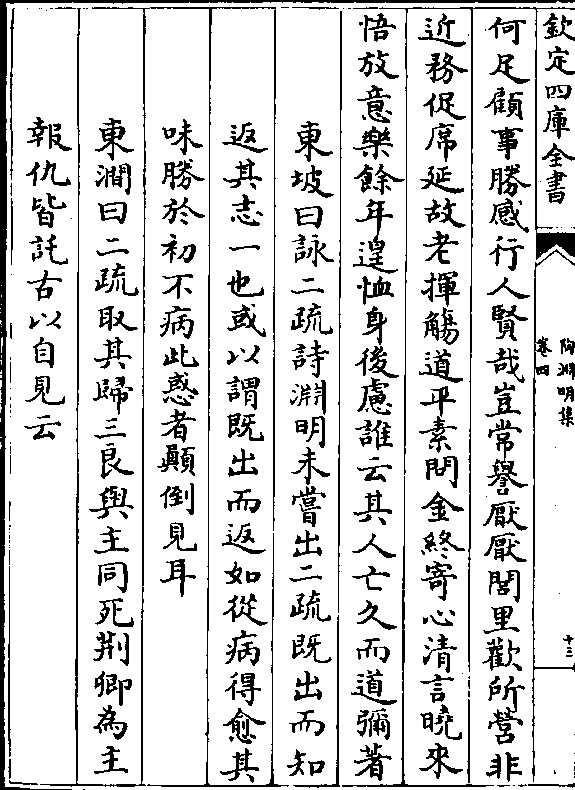 欽定四庫全書
陶淵明集
卷四
十三
何足顧事勝感行人賢哉豈常譽厭厭閭里歡所營非
近務促席延故老揮觴道平素問金終寄心清言曉來
悟放意樂餘年遑恤身後慮誰云其人亡久而道彌著
東坡曰詠二疏詩淵明未嘗出二疏既出而知
返其志一也或以謂既出而返如從病得愈其
味勝於初不病此惑者顛倒見耳
東澗曰二疏取其歸三良與主同死荆卿為主
報仇皆託古以自見云